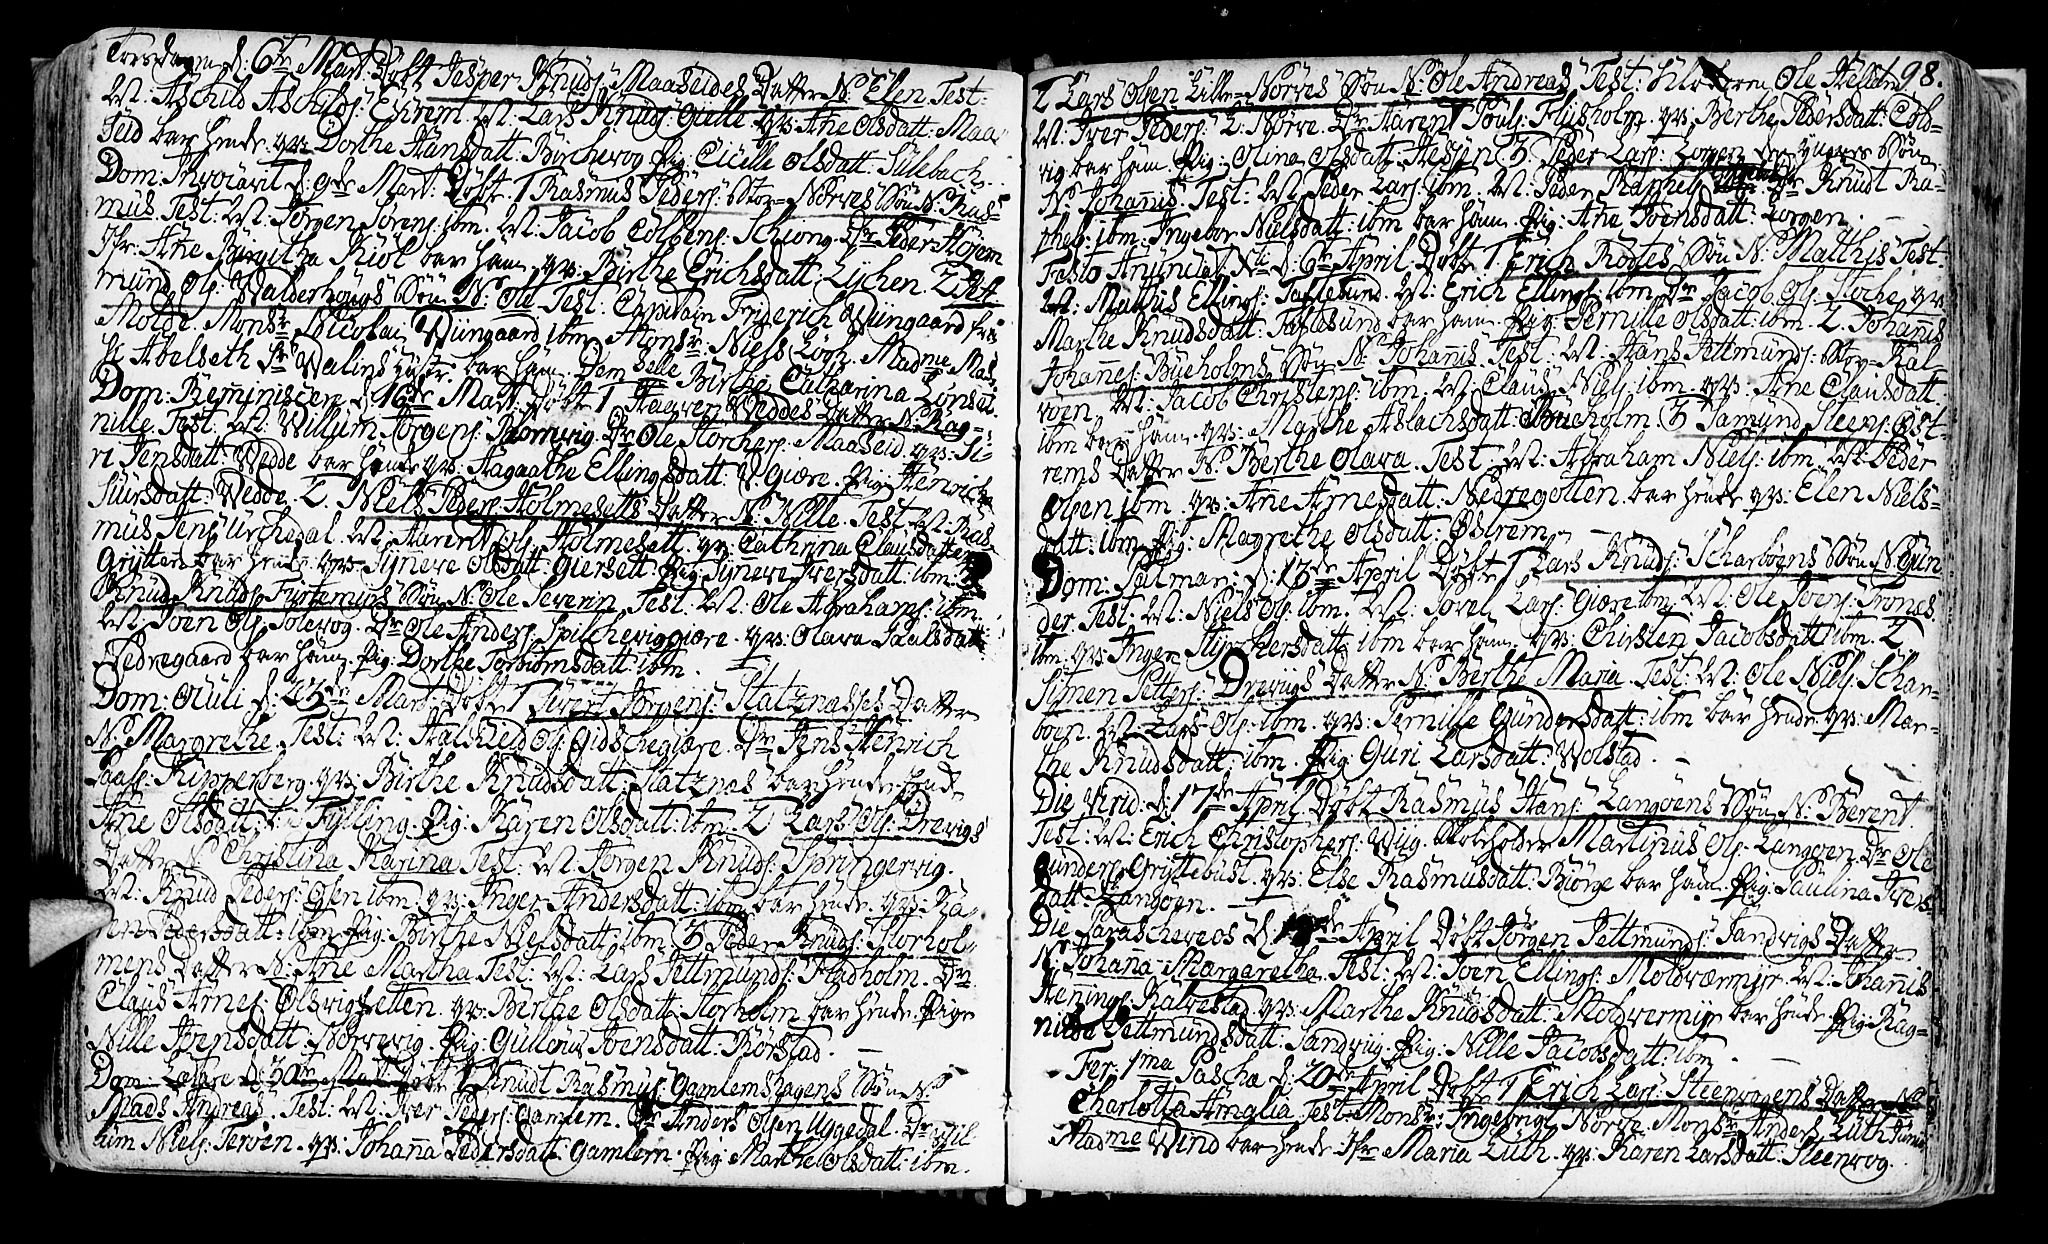 Torsdagen d: 6te Mart: Døbt Jesper Knuds: Maaseides Datter N: Elen. Test:
Wt: Aschild Aschilds: Ehrem. Wt: Lars Knuds: Gielle. qvs: Ane Olsdatt: Maa-
seid bar hende. qvs: Dorthe Hansdatt: Birchevog. Pig: Cicelle Olsdatt: Sulebach.
Dom: Invocavit d: 9de Mart: Døbt 1 Rasmus Peders: Stor-Nørves Søn N: Ras-
mus. Test: Wt: Jørgen Sørens: ibm. Wt: Jacob Colbens: Schiong. Dr: Peder
Jfr: Ane Birgitha Kiol bar ham. qvs: Birthe Erichsdatt: Lychen. 2
mund Ols: Walderhougs Søn N: Ole. Test: Capitain Friderich Wiingaard fra
Molde. Monsr: Nicolai Wiingaard ibm. Monsr: Niels Lorh. Madme
Abelseth bar ham. Demselle Birthe Catharina
Dom: Reminiscere d: 16de Mart: Døbt 1 Veddes Datter N: Rag-
nille. Test: Wt: Willum Jørgens: Dr: Ole Storchers: Maaseid. qvs: Si-
ri Jensdatt: Vedde bar hende. qvs: Hagaathe Ellingsdatt: V: Giøre. Pig: Henrich
Siursdatt: Vedde. 2. Niels Peders: Holmesetts Datter N: Nille. Test: Wt: Ras-
mus Jens: Urchedal. Wt: Ols: Holmesett. qvs: Cathrina Clausdatter
Grytten bar hende. qvs: Synere Olsdatt: Giersett. Pig: Synere Iversdatt: ibm.
Knud Knuds: Søn N: Ole Severin. Test: Wt: Ole Abrahams: ibm.
Wt: Joen Ols: Solevog. Dr: Ole Anders: Spilcheviggiøre. qvs: Olava Paalsdatt:
Nedregaard bar ham. Pig: Dorthe Torbiornsdatt: ibm.
Dom: Oculi d: 23de Mart: Døbt 1 Sivert Jørgens: Statznæsses Datter
N: Margrethe. Test: Wt: Halchield Ols: Gidschegiøre. Dr: Jens Henrich
Paals: Ripperberg. qvs: Birthe Knudsdatt: Statznæs bar hende.
Ane Olsdatt: Fylling. Pig: Karen Olsdatt: ibm. 2. Lars Ols: Drevigs
Datter N: Christina Karina. Test: Wt: Jørgen Knuds: Springervig.
Wt: Knud Peders: Olsen ibm. qvs: Inger Andersdatt: ibm bar hende. qvs: Ka-
ren Pedersdatt: ibm. Pig: Birthe Nielsdatt: ibm. 3. Peder Knuds: Storhol-
mens Datter N: Ane Martha. Test: Wt: Lars Pettmunds: Stadholm. Dr:
Claus Arnes: Olsvigsetten. qvs: Birthe Olsdatt: Storholm bar hende. Pige
Nille Joensdatt: Nørvevig. Pig: Gullou Joensdatt: Rørstad.
Dom: Lætare d: 30te Mart: Døbt 1 Knudt Rasmus: Gamlemshagens Søn N:
Mads Andreas. Test: Wt: Iver Peders: Gamlem. Dr: Anders Olsen Uggedal. Dr:
lum Niels: Terøen. qvs: Johana Pedersdatt: Gamlem. Pig: Marthe Olsdatt: ibm.
198.
2 Lars Olsen Lille-Nørves Søn N: Ole Andreas. Test: Ole
Wt: Iver Peders: L: Nørve. Dr: Haren Pouls: Flisholm. qvs: Berthe Pedersdatt: Cold-
vig bar ham. Pig: Olina Olsdatt: Hessen. 3. Peder Lars: Lorgen den yngres Søn
N: Johanis. Test: Wt: Peder Lars: ibm. Wt: Peder Raphels: Dr: Knudt Ra-
phels: ibm. Ingebor Nielsdatt: ibm bar ham. Pig: Ane Joensdatt: Lorgen.
Festo Anunciat: Xti d: 6te April Døbt 1 Erich Rødtes Søn N: Matthis. Test:
Wt: Mathis Ellings: Taftesund. Wt: Erich Ellings: ibm. Dr: Jacob Ols: Stoche. qvs:
Marthe Knudsdatt: Taftesund bar ham. Pig: Pernille Olsdatt: ibm. 2. Johanis
Johannes: Bueholms Søn N: Johanis. Test: Wt: Hans Pettmunds: Stor-Kal-
vøen. Wt: Jacob Christens: ibm. Wt: Claus Niels: ibm. qvs: Ane Clausdatt:
ibm bar ham. qvs: Marthe Aslachsdatt: Bueholm. 3. Samund Steens: Øst-
rems Datter N: Berthe Olava. Test: Wt: Abraham Niels: ibm. Wt: Peder
Olsen ibm. qvs: Ane Arnesdatt: Nedregotten bar hende. qvs: Elen Niels-
datt: ibm. Pig: Magrethe Olsdatt: Østrem.
Dom: Palmar: d: 13de April Døbt 1 Lars Knuds: Scharboens Søn N: Gun-
der. Test: Wt: Niels Ols: ibm. Wt: Povel Lars: Giøre ibm. Wt: Ole Joens: Tronæs.
ibm. qvs: Inger Slipchersdatt: ibm bar ham. qvs: Chirsten Jacobsdatt: ibm. 2.
Simen Petters: Drevigs Datter N: Berthe Maria. Test: Wt: Ole Niels: Schar-
boen. Wt: Lars Ols: ibm. qvs: Pernille Gundersdatt: ibm bar hende. qvs: Mar-
the Knudsdatt: ibm. Pig: Guri Larsdatt: Wolstad.
Die Virid: d: 17de April Døbt Rasmus Hans: Langøens Søn N: Berent.
Test: Wt: Erich Christophers: Wiig. Skoleholder Martinus Ols: Langøen. Dr: Ole
Gunders: Gryttebust. qvs: Else Rasmusdatt: Biørge bar ham. Pig: Paulina Ivers-
datt: Langøen.
Die Parascheveos d: 18de April Døbt Jørgen Pettmunds: Sandvigs Datter
N: Johana Margaretha. Test: Wt: Joen Ellings: Moldværmyr. Wt: Johanis
Hennings: Kalvestad. qvs: Marthe Knudsdatt: Moldvermyr bar hende. Pig: Rag-
nilda Pettmundsdatt: Sandvig. Pig: Nille Jacobsdatt: ibm.
Fer: 1ma Paschæ d: 20de April Døbt 1 Erich Lars: Steenvogens Datter N:
Charlotta Amalia. Test: Monsr: Ingebrigt Nørve. Monsr: Anders Luth
Madme Wind bar hende. Jfr: Maria Luth. qvs: Karen Larsdatt: Steenvog.